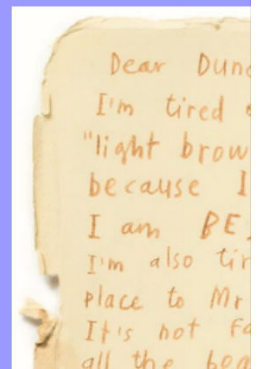 Dear Dunc
I'm tired
"light brow
because I
I am BE
I'm also tir
place to Mr
It's not Fa
all the bea